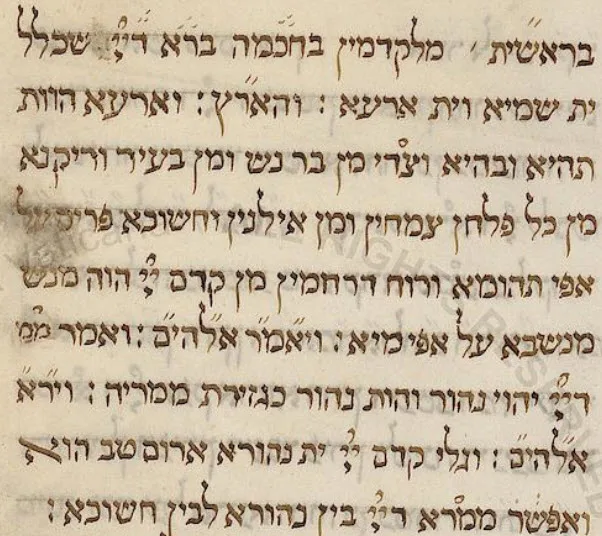 בראשית מלקדמין בחכמה ברא דייי שכלל
ית שמיא וית ארעא : והארץ : וארעא הוות
תהיא ובהיא וצדי מן בר נש ומן בעיר וריקנא
מן כל פלחן צמחין ומן אילנין וחשוכא פריס על
אפי תהומא ורוח דרחמין מן קדם ייי הוה מנש
מנשבא על אפי מיא : ויאמר אלהים : ואמר ממ
דייי יהוי נהור והות נהור כגזירת ממריה : וירא
אלהים : וגלי קדם ייי ית נהורא ארום טב הוא
ואפשר ממרא דייי בין נהורא לבין חשוכא :